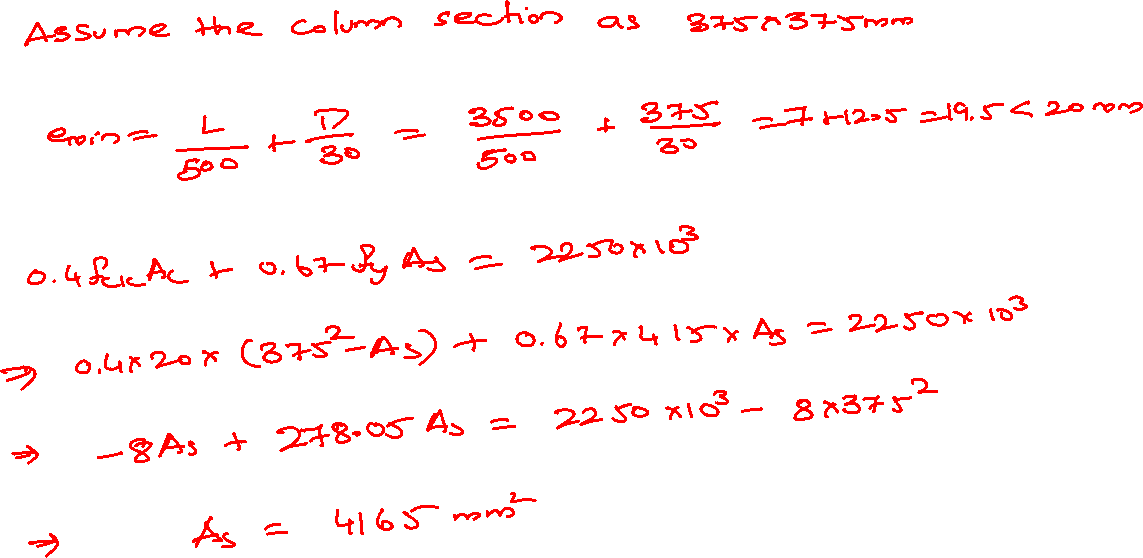 Assume the column section as 375×375mm
emin = L/500 + D/30 = 3500/500 + 375/30 = 7+12.5 = 19.5 < 20 mm
0.4 fck Ac + 0.67 fy As = 2250×10³
⇒ 0.4×20×(375²-As) + 0.67×415×As = 2250×10³
⇒ -8As + 278.05 As = 2250×10³ - 8×375²
⇒ As = 4165 mm²